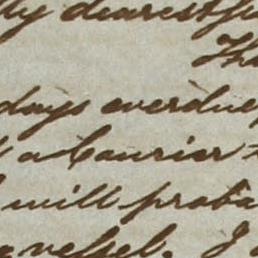 dearest
days overdue,
a Courier
will proba
vessel. I